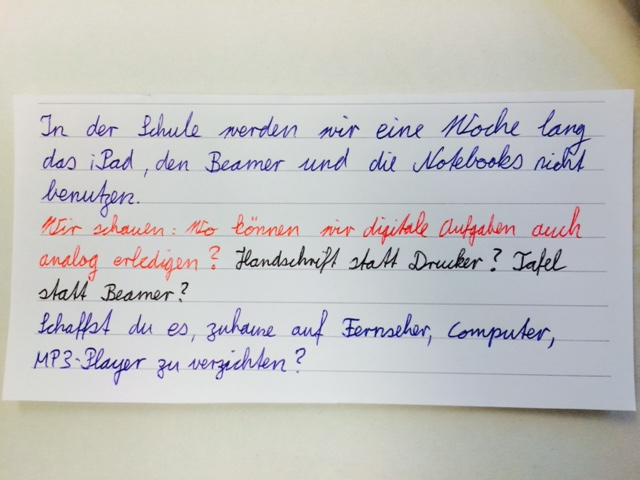 In der Schule werden wir eine Woche lang
das iPad, den Beamer und die Notebooks nicht
benutzen.
Wir schauen: Wo können wir digitale Aufgaben auch
analog erledigen? Handschrift statt Drucker? Tafel
statt Beamer?
Schaffst du es, zuhause auf Fernseher, Computer,
MP3-Player zu verzichten?